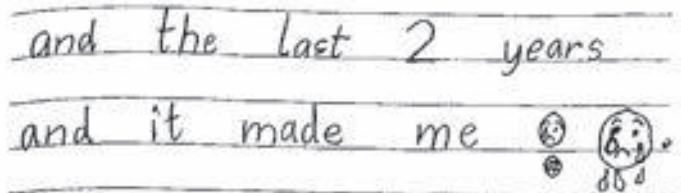 and the last 2 years
and it made me .